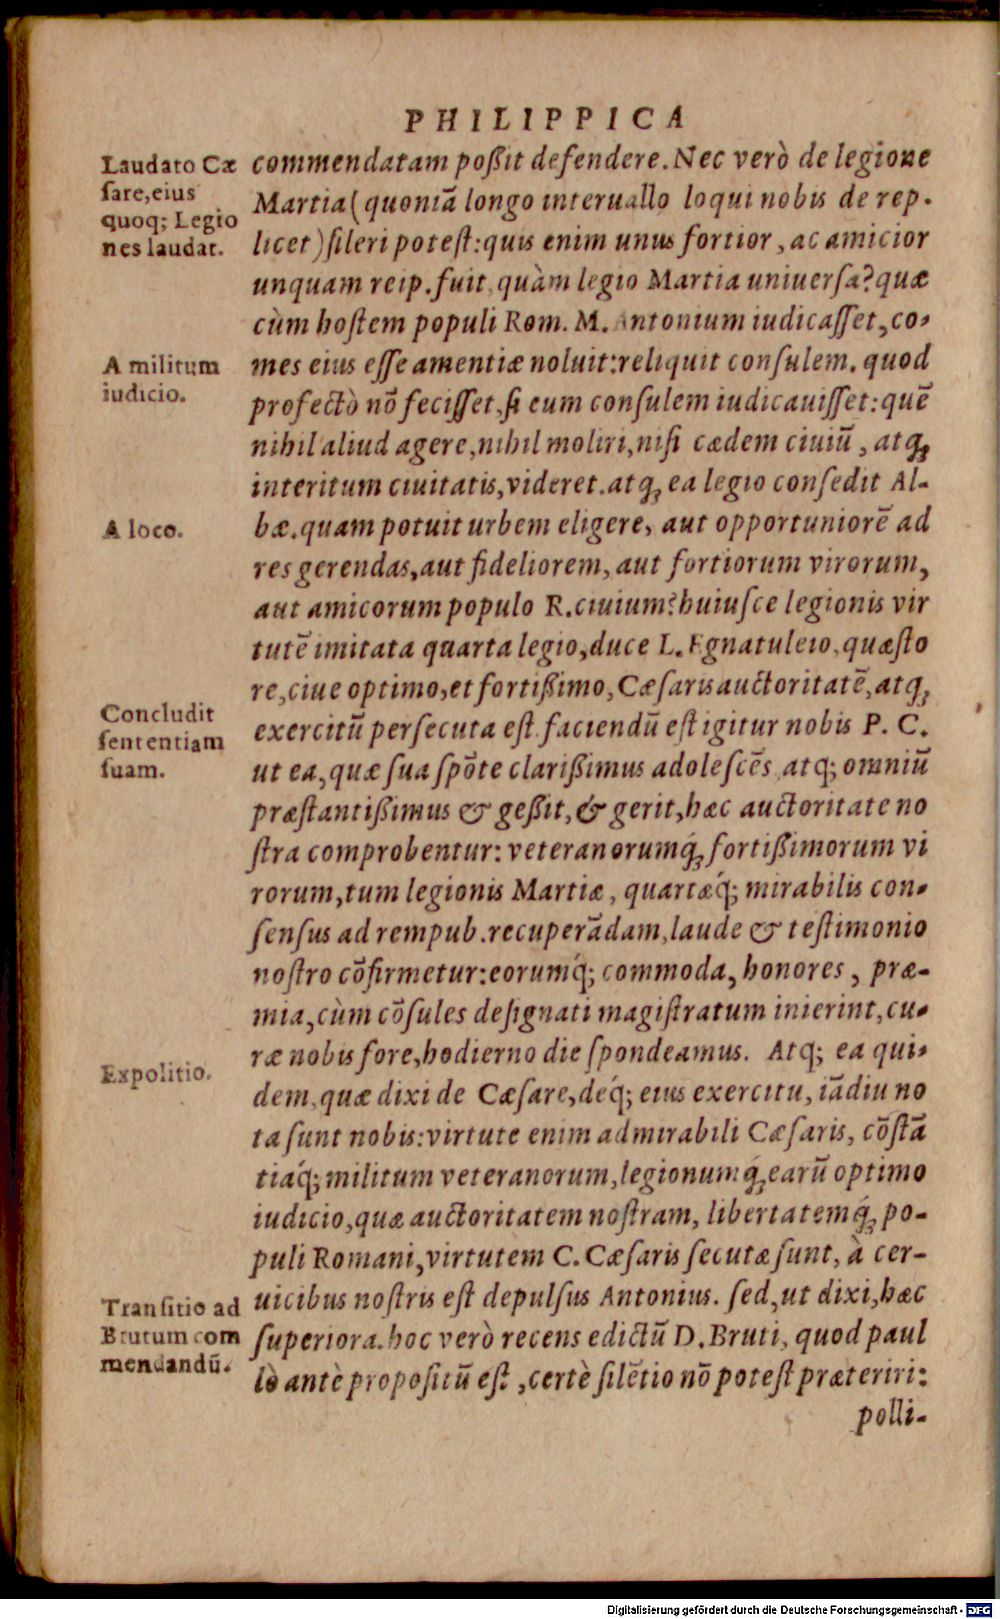 PHILIPPICA
Laudato Cæ
ſare, eius
quoq; Legio
nes laudat.
commendatam poßit defendere. Nec verò de legione
Martia (quoniā longo interuallo loqui nobis de rep.
licet) ſileri poteſt: quis enim unus fortior, ac amicior
unquam reip. fuit, quàm legio Martia uniuerſa? quæ
cùm hoſtem populi Rom. M. Antonium iudicaſſet, co-
A militum
iudicio.
mes eius eſſe amentiæ noluit: reliquit conſulem. quod
profectò nō feciſſet, ſi eum conſulem iudicauiſſet: quē
nihil aliud agere, nihil moliri, niſi cædem ciuiū, atq;
interitum ciuitatis, videret. atq; ea legio conſedit Al-
A loco.
bæ. quam potuit urbem eligere, aut opportuniorē ad
res gerendas, aut fideliorem, aut fortiorum virorum,
aut amicorum populo R. ciuium? huiuſce legionis vir
tutē imitata quarta legio, duce L. Egnatuleio, quæſto
re, ciue optimo, et fortißimo, Cæſaris auctoritatē, atq;
Concludit
ſententiam
ſuam.
exercitū perſecuta eſt. faciendū eſt igitur nobis P. C.
ut ea, quæ ſua ſpōte clarißimus adoleſcēs, atq; omniū
præſtantißimus & geßit, & gerit, hæc auctoritate no
ſtra comprobentur: veteranorumq́; fortißimorum vi
rorum, tum legionis Martiæ, quartæq́; mirabilis con-
ſenſus ad rempub. recuperādam, laude & teſtimonio
noſtro cōfirmetur: eorumq́; commoda, honores, præ-
mia, cùm cōſules deſignati magiſtratum inierint, cu-
ræ nobis fore, hodierno die ſpondeamus. Atq; ea qui-
Expolitio.
dem, quæ dixi de Cæſare, deq́; eius exercitu, iādiu no
ta ſunt nobis: virtute enim admirabili Cæſaris, cōſtā
tiaq́; militum veteranorum, legionumq́; earū optimo
iudicio, quæ auctoritatem noſtram, libertatemq́; po-
puli Romani, virtutem C. Cæſaris ſecutæ ſunt, à cer-
Tranſitio ad
Brutum com
mendandū.
uicibus noſtris eſt depulſus Antonius. ſed, ut dixi, hæc
ſuperiora. hoc verò recens edictū D. Bruti, quod paul
lò antè propoſitū eſt, certè ſilētio nō poteſt præteriri:
polli-
Digitalisierung gefördert durch die Deutsche Forschungsgemeinschaft - DFG